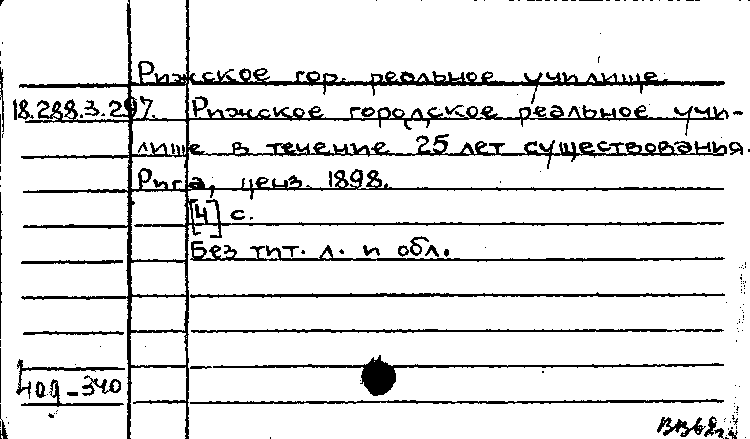 Рижское гор. реальное училище.
18.288.3.297. Рижское городское реальное учи-
лище в течение 25 лет существования.
Рига, ценз. 1898.
[4] с.
Без тит. л. и обл.
409-340